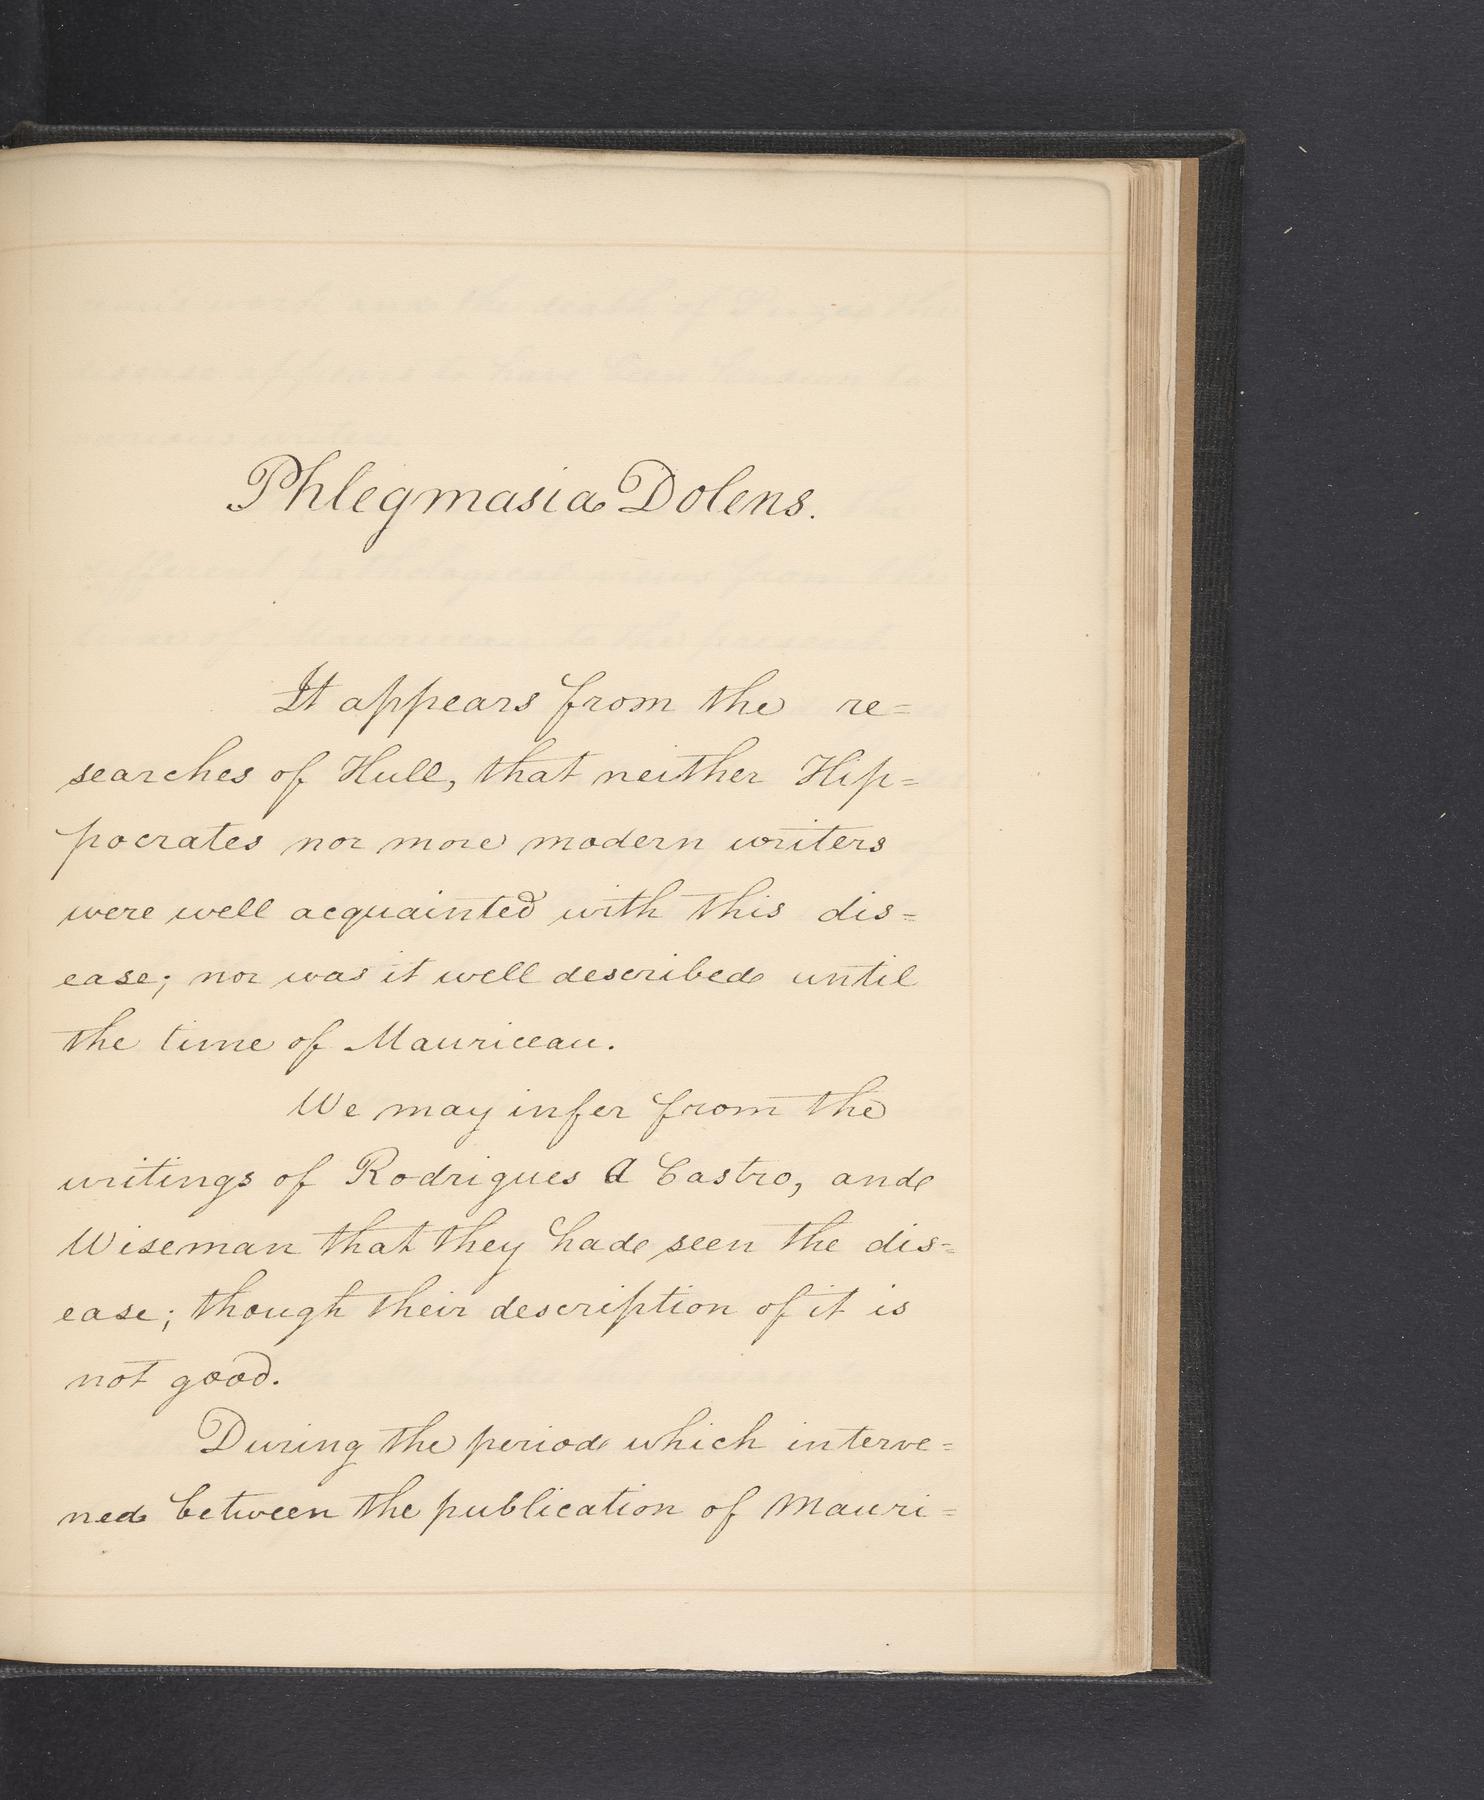 Phlegmasia Dolens.
It appears from the re=
searches of Hull, that neither Hip=
pocrates nor more modern writers
were well acquainted with this dis=
ease; nor was it well described until
the time of Mauriceau.
We may infer from the
writings of Rodrigues a Castro, and
Wiseman that they had seen the dis=
ease; though their description of it is
not good.
During the period which interve=
ned between the publication of Mauri=